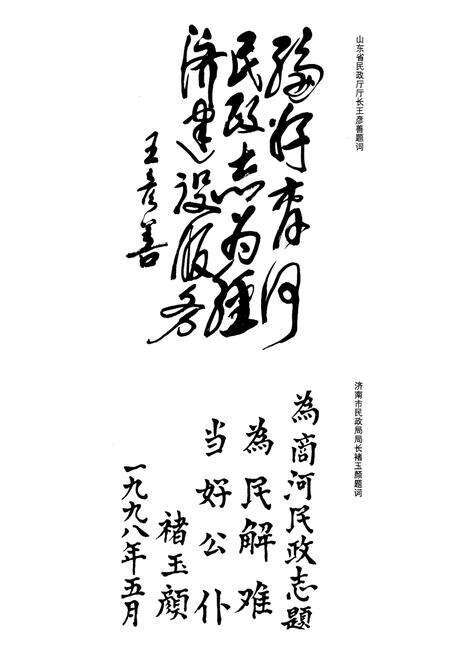 山东省民政厅厅长王彦善题词
编好商河
民政志为经
济建设服务
王彦善
济南市民政局局长褚玉颜题词
為商河民政志題
為民解难
当好公仆
褚玉颜
一九九八年五月